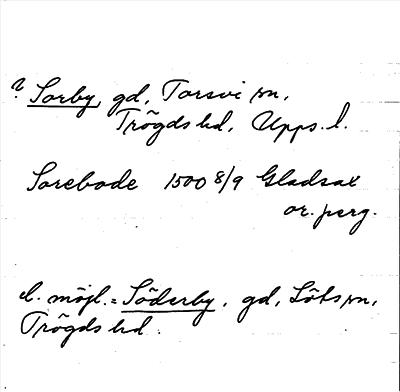 ? Sorby, gd, Torsvi sn,
Trögds hd, Upps. l.
Sorebode 1500 8/9 Gladsax
or. perg.
el. möjl. = Söderby, gd, Löts sn,
Trögds hd.